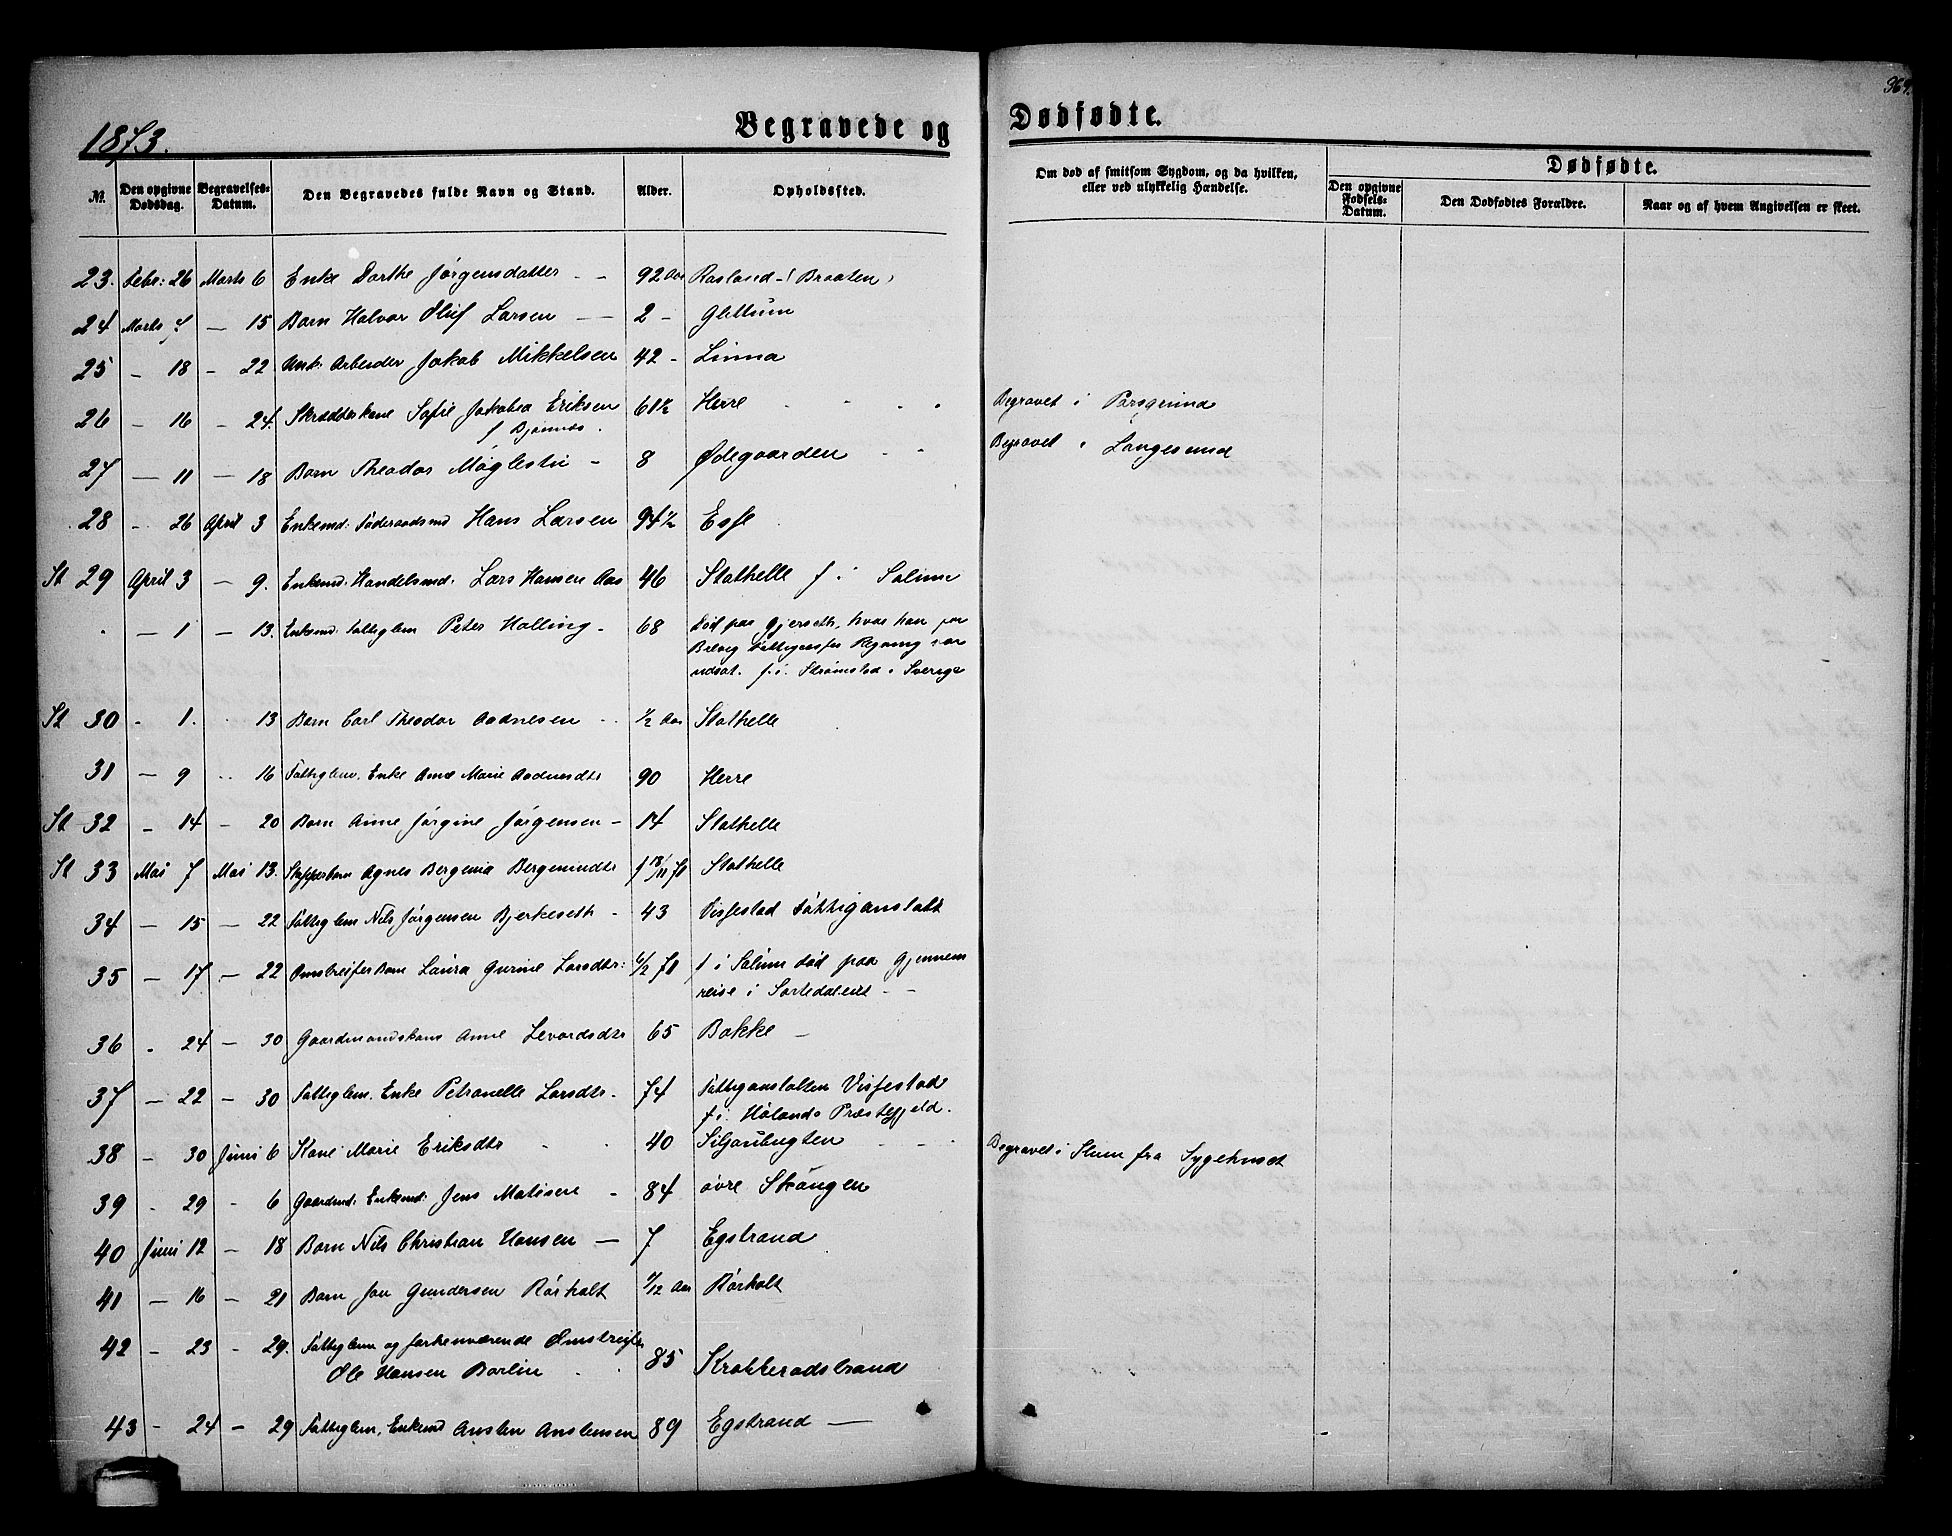 364.
1873.
Begravede og Dødfødte.
№. Den opgivne Dødsdag. Begravelses-Datum. Den Begravedes fulde Navn og Stand. Alder. Opholdssted.
Om død af smitsom Sygdom, og da hvilken, eller ved ulykkelig Hændelse.
Dødfødte.
Den opgivne Fødsels-Datum. Den Dødfødtes Forældre. Naar og af hvem Angivelsen er skeet.
23. Febr: 26 Marts 6 Enke Dorthe Jørgensdatter - - 92 Aar Rasland - (Braaten)
24 Marts 7 — 15 Barn Halvor Oluf Larsen — 2 - Glittum
25 — 18 — 22 Unk: Arbeider Jakob Mikkelsen 42 - Linna
26 — 16 — 24. Skrædderkone Sofie Jakobea Eriksen 61½ Herre Begravet i Porsgrund
f Bjønnes.
27 — 11 — 18 Barn Theodor Møglestu - 8 Ødegaarden Begravet i Langesund
28 - 26 April 3 Enkemd: Føderaadsmd Hans Larsen 94½ Esse
St 29 April 3 — 9. Enkemd: Handelsmd: Lars Hansen Aas 46 Stathelle f i Solum
— 1 — 13. Enkemd: Fattiglem Peter Halling - 68 Død paa Gjerseth, hvor han for
Brevig Fattigvæsens Regning var
udsat. f. i. Strømstad i Sverige
St 30 - 1. 13 Barn Carl Theodor Aadnesen ½ Aar Stathelle
31 — 9 16 Fattiglem. Enke Anne Marie Aadnesdtr 90 Herre
St 32 - 14 — 20 Barn Anne Jørgine Jørgensen - 14 Stathelle
St 33 Mai 7 Mai 13. Agnes Bergemine f 18/11 71 Stathelle
34 — 15 — 22 Fattiglem Nils Jørgensen Bjerkeseth - 43 Vissestad Fattiganstalt
35 — 17 — 22 Omstreifer Barn Laura Gurine Larsdtr: 6/2 71 f i Solum død paa Gjennem
reise i Sortedaleret
36 - 24 — 30 Gaardmandskone Anne Levordsdtr 65 Bakke —
37 — 22 — 30 Fattiglem. Enke Petronelle Larsdtr. 74 Fattiganstalten Vissestad
f. i. Hølands Præstegjeld.
38 - 30 Juni 6 Kone Marie Eriksdtr 40 Siljanbugten Begravet i Skien fra Sygehuset
39 - 29 - 6 Gaardmd: Enkemd: Jens Matisen - 84 øvre Skougen
40 Juni 12 — 18 Barn Nils Christian Hansen — 7 Egstrand
41 — 16 — 21 Barn Jon Gundersen Rørholt 7/12 Aar Rørholt
42 — 23 — 29. Fattiglem og forhenværende Omstreifer
Ole Hansen Barlin 85 Krokkeradstrand
43 - 24 — 29 Fattiglem. Enkemd Anslen Anslensen 89 Egstrand —